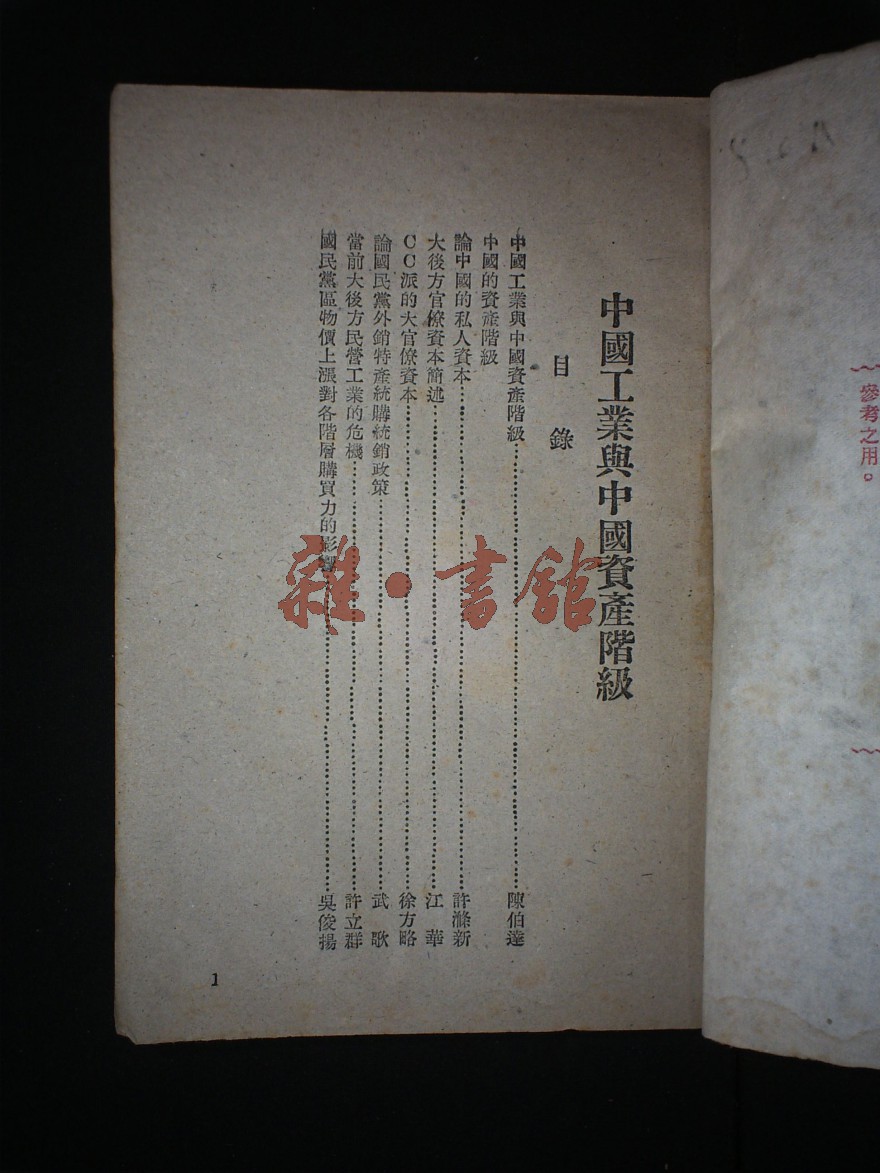 參考之用。
中國工業與中國資產階級
目錄
中國工業與中國資產階級……陳伯達
中國的資產階級
論中國的私人資本……許滌新
大後方官僚資本簡述……江華
CC派的大官僚資本……徐方略
論國民黨外銷特產統購統銷政策……武歌
當前大後方民營工業的危機……許立群
國民黨區物價上漲對各階層購買力的影響……吳俊揚
1
雜·書館